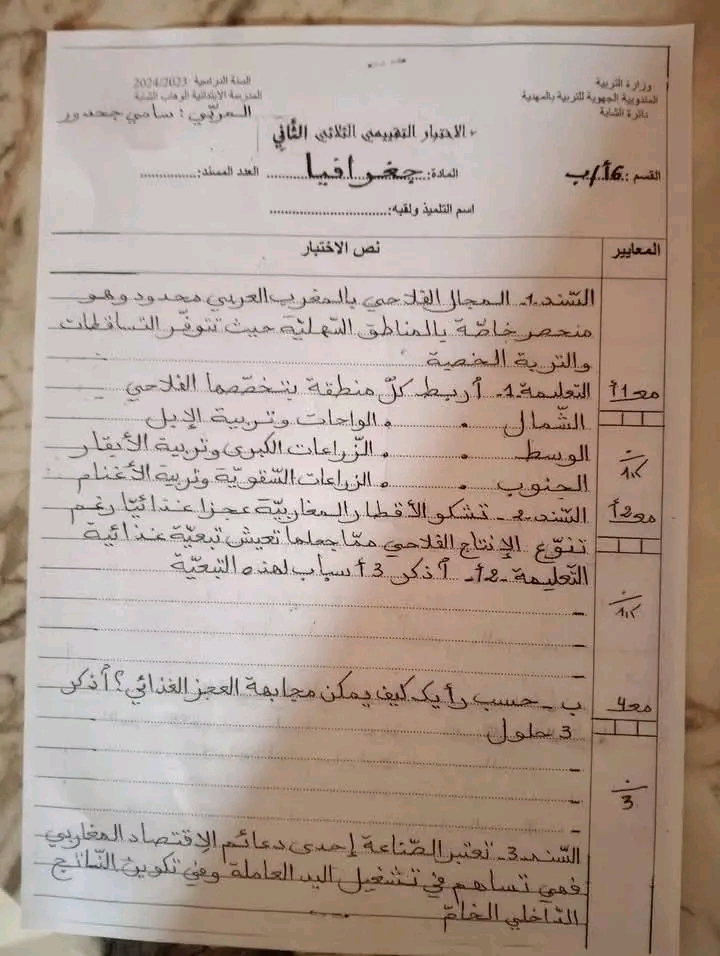 وزارة التربية
المندوبية الجهوية للتربية بالمهدية
دائرة الشابة
السنة الدراسية 2024/2023
المدرسة الابتدائية الوهاب الشابة
المربّي: سامي جحدور
الاختبار التقييمي الثلاثي الثّاني
القسم: 6أ/ب
المادة: جغرافيا
العدد المسند:
اسم التلميذ ولقبه:
المعايير
نص الاختبار
السّند.1. المجال الفلاحي بالمغرب العربي محدود وهو
منحصر خاصّة بالمناطق السّهليّة حيث تتوفّر التساقطات
والتربة الخصبة
مع1أ
التعليمة.1. أربط كلّ منطقة بتخصّصها الفلاحي
الشّمال . . الواحات وتربية الإبل
الوسط . . الزّراعات الكبرى وتربية الأبقار
الجنوب . . الزراعات السّقويّة وتربية الأغنام
مع2أ
السّند.2. تشكو الأقطار المغاربيّة عجزا غذائيّا رغم
تنوّع الإنتاج الفلاحي ممّا جعلها تعيش تبعيّة غذائية
التعليمة.2أ. أذكر 3 أسباب لهذه التبعيّة
-
-
-
مع4
ب - حسب رأيك كيف يمكن مجابهة العجز الغذائي؟ أذكر
3 حلول
-
-
-
3
السّند.3. تعتبر الصّناعة إحدى دعائم الاقتصاد المغاربي
فهي تساهم في تشغيل اليد العاملة وفي تكوين النّاتج
الدّاخلي الخامّ